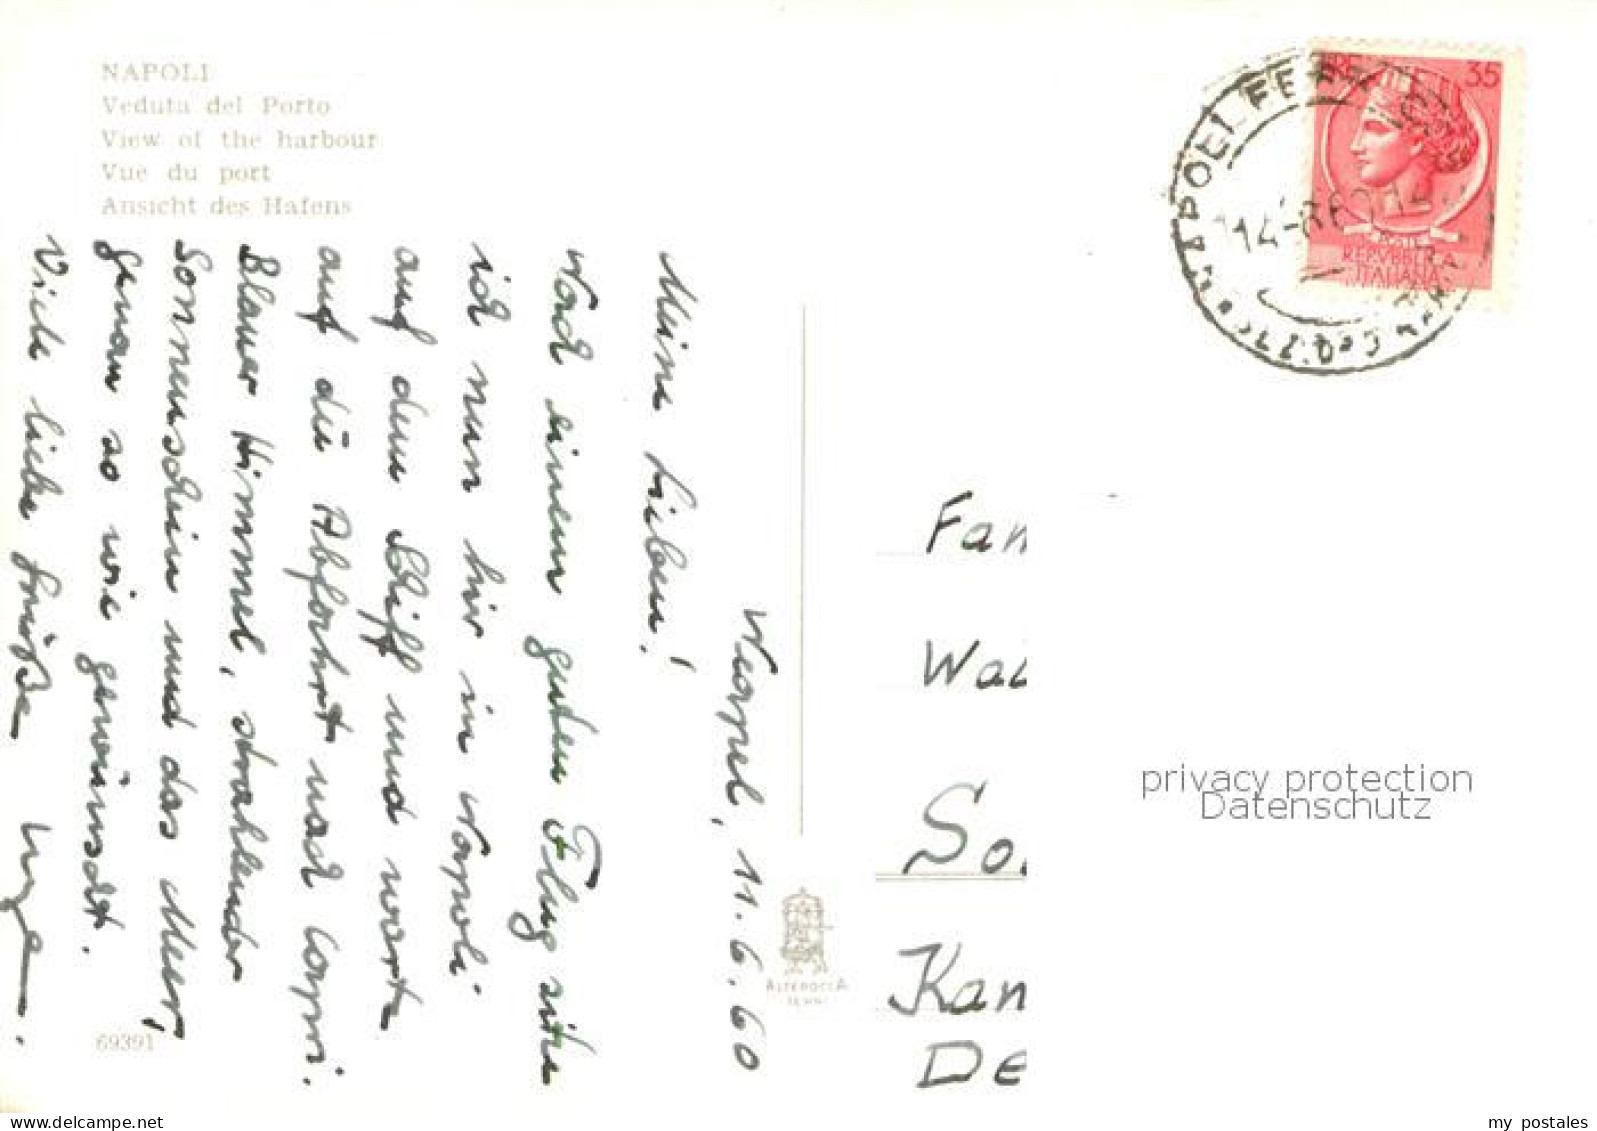 NAPOLI
Veduta del Porto
View of the harbour
Vue du port
Ansicht des Hafens
Neapel, 11.6.60
Meine Lieben!
Nach einem guten Flug sitze
ich nun hier in Napoli
auf dem Schiff und warte
auf die Abfahrt nach Capri.
Blauer Himmel, strahlender
Sonnenschein und das Meer,
genau so wie gewünscht.
Viele liebe Grüße
69391
ALTEROCCA
TERNI
35
REPVBBLICA
ITALIANA
NAPOLI FERR
Fam
Wal
So
Kan
De
privacy protection
Datenschutz
delcampe.net
my postales